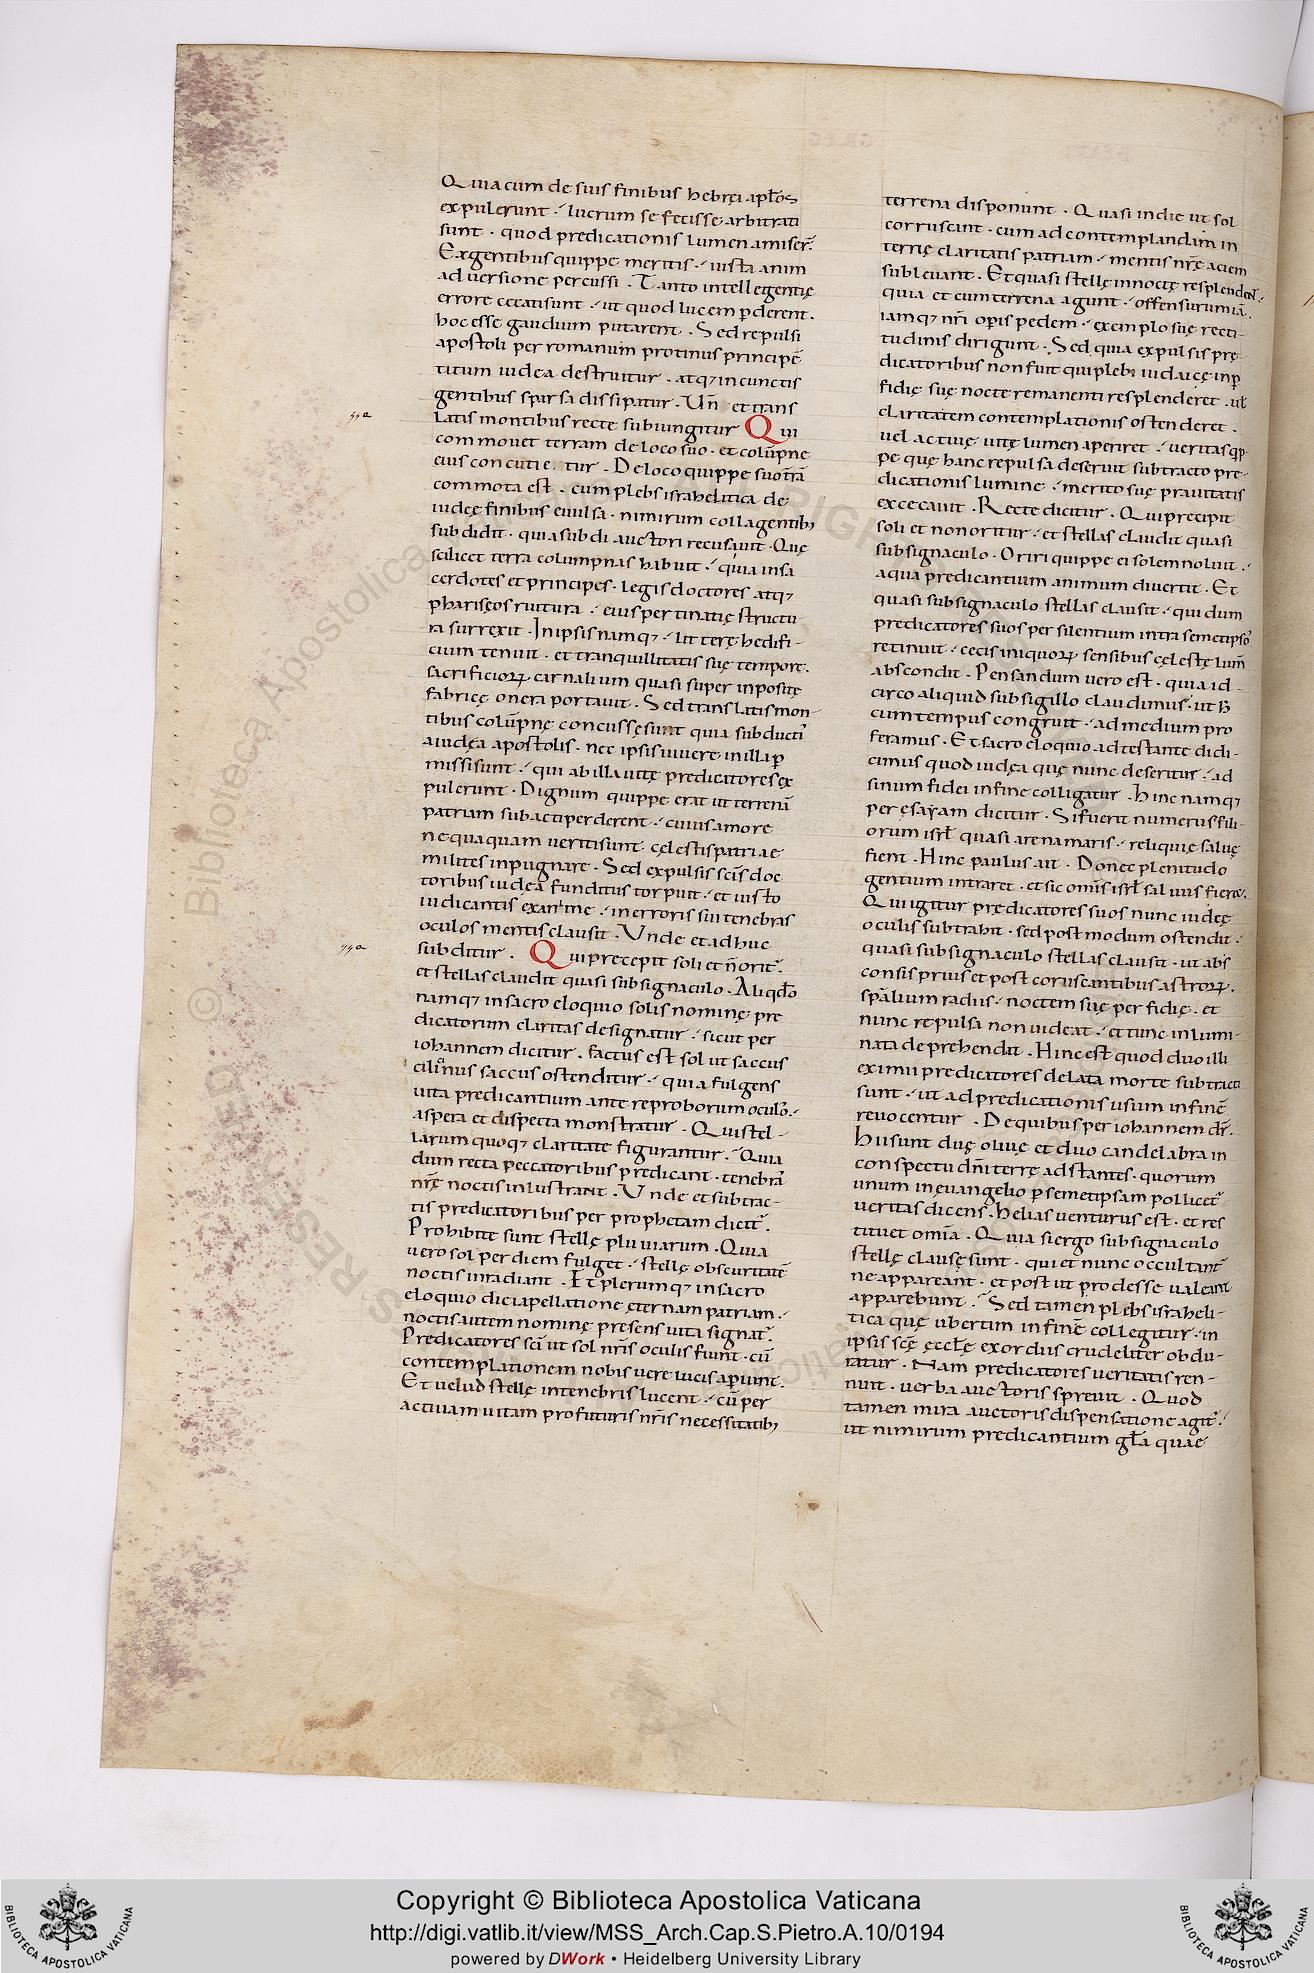 Quia cum de suis finibus hebręi apl̅os
expulerunt · lucrum se fecisse arbitrati
sunt · quod predicationis lumen amiser̅.
Exgentibus quippe meritis · iusta anim
adversione percussi . Tanto intellegentię
errore cecati sunt · ut quod lucem ꝑderent .
hoc esse gaudium putarent . Sed repulsi
apostoli per romanum protinus principe̅
titum iudea destruitur . atq; in cunctis
gentibus sparsa dissipatur . Un̅ et trans
latis montibus recte subiungitur Qui
commovet terram de loco suo · et colu̅pne
eius concutie tur . De loco quippe suo t̅ra̅
commota est . cum plebs israhelitica de
iudęę finibus evulsa · nimirum colla gentib;
subdidit · quia subdi auctori recusavit . Quę
scilicet terra columpnas habuit · quia in sa
cerdotes et principes · legis doctores atq;
pharisęos ruitura · eius pertinatię structu
ra surrexit . In ipsis namq; · litterę hedifi
cium tenuit · et tranquillitatis suę tempore .
sacrificioꝝ carnalium quasi super inpositę
fabricę onera portavit . Sed translatis mon
tibus colu̅pnę concussę sunt quia subducti
a iudęa apostolis · nec ipsi vivere in illa ꝑ
missi sunt · qui ab illa vitę predicatores ex
pulerunt . Dignum quippe erat ut terrena̅
patriam subacti perderent · cuius amore
nequaquam veriti sunt cęlestis patriae
milites inpugnare . Sed expulsis sc̅is doc
toribus iudea funditus torpuit · et iusto
iudicantis examine · in erroris sui tenebras
oculos mentis clausit . Unde et adhuc
subditur . Qui precepit soli et n̅ orit̅.
et stellas claudit quasi sub signaculo . Aliqdo
namq; in sacro eloquio solis nominę pre
dicatorum claritas designatur · sicut per
iohannem dicitur . factus est sol ut saccus
cilicinus saccus ostenditur · quia fulgens
vita predicantium ante reproborum oculo̅ .
aspera et dispecta monstratur . Qui stel
larum quoq; claritate figurantur . Quia
dum recta peccatoribus predicant · tenebra̅
nr̅ę noctis inlustrant . Unde et subtrac
tis predicatoribus per prophetam dicit̅.
Prohibite sunt stellę pluviarum . Quia
vero sol per diem fulget · stellę obscuritate̅
noctis inradiant . Et plerumq; in sacro
eloquio diei apellatione ęternam patriam .
noctis autem nominę presens vita signat̅.
Predicatores sc̅i ut sol nr̅is oculis fiunt · cu̅
contemplationem nobis vere lucis aꝑiunt .
Et velud stellę in tenebris lucent · cu̅ per
activam vitam profuturis nr̅is necessitatib;
terrena disponunt . Quasi in die ut sol
corruscant · cum ad contemplandam in
ternę claritatis patriam · mentis nr̅ę aciem
sublevant . Et quasi stellę in noctę resplendent .
quia et cum terrena agunt · offensurum ia̅
iamq; nr̅i oꝑis pedem · exemplo suę recti
tudinis dirigunt . Sed quia expulsis pre
dicatoribus non fuit qui plebi iudaicę in ꝑ
fidię suę nocte remanenti resplenderet . vel
claritatem contemplationis ostenderet .
vel activę vitę lumen aperiret . veritas q̅p
pe quę hanc repulsa deseruit subtracto pre
dicationis lumine · merito suę pravitatis
excecavit . Recte dicitur . Qui precipit
soli et non oritur · et stellas claudit quasi
sub signaculo . Oriri quippe ei solem noluit .
a qua predicantium animum divertit . Et
quasi sub signaculo stellas clausit · qui dum
predicatores suos per silentium intra semetipso̅
retinuit · cecis iniquoꝝ sensibus cęlestę lum̅
abscondit . Pensandum vero est · quia id
circo aliquid sub sigillo claudimus · ut h̅
cum tempus congruit · ad medium pro
feramus . Et sacro eloquio adtestante didi
cimus quod iudęa quę nunc deseritur · ad
sinum fidei in fine colligatur . Hinc namq;
per ęsayam dicitur . Si fuerit numerus fili
orum isrl̅ quasi arena maris · reliquię salvę
fient . Hinc paulus ait . Donec plenitudo
gentium intraret · et sic om̅is isrl̅ salvus fieret .
Qui igitur predicatores suos nunc iudęę
oculis subtrahit · sed postmodum ostendit .
quasi sub signaculo stellas clausit · ut abs
consis prius et post coruscantibus astroꝝ .
spa̅lium radiis · noctem suę perfidię · et
nunc repulsa non videat · et tunc inlumi
nata deprehendit . Hinc est quod duo illi
eximii predicatores delata morte subtracti
sunt · ut ad predicationis usum in fine̅
revocentur . De quibus per iohannem dr̅.
Hii sunt duę olivę et duo candelabra in
conspectu dn̅i terrę adstantes · quorum
unum in ęvangelio ꝑ semetipsam pollicet̅
veritas dicens . Helias venturus est · et res
tituet om̅ia . Quia si ergo sub signaculo
stellę clausę sunt · qui et nunc occultant̅
ne appareant · et post ut prodesse valeant
apparebunt . Sed tamen plebs israheli
tica quę ubertim in fine̅ collegitur · in
ipsis sc̅ę ęccl̅ę exordiis crudeliter obdu
ratur . Nam predicatores veritatis ren
nuit · verba auctoris sprevit . Quod
tamen mira auctoris dispensatione agit̅ .
ut nimirum predicantium gl̅a quae
Copyright © Biblioteca Apostolica Vaticana
http://digi.vatlib.it/view/MSS_Arch.Cap.S.Pietro.A.10/0194
powered by DWork • Heidelberg University Library
BIBLIOTECA APOSTOLICA VATICANA
BIBLIOTECA APOSTOLICA VATICANA